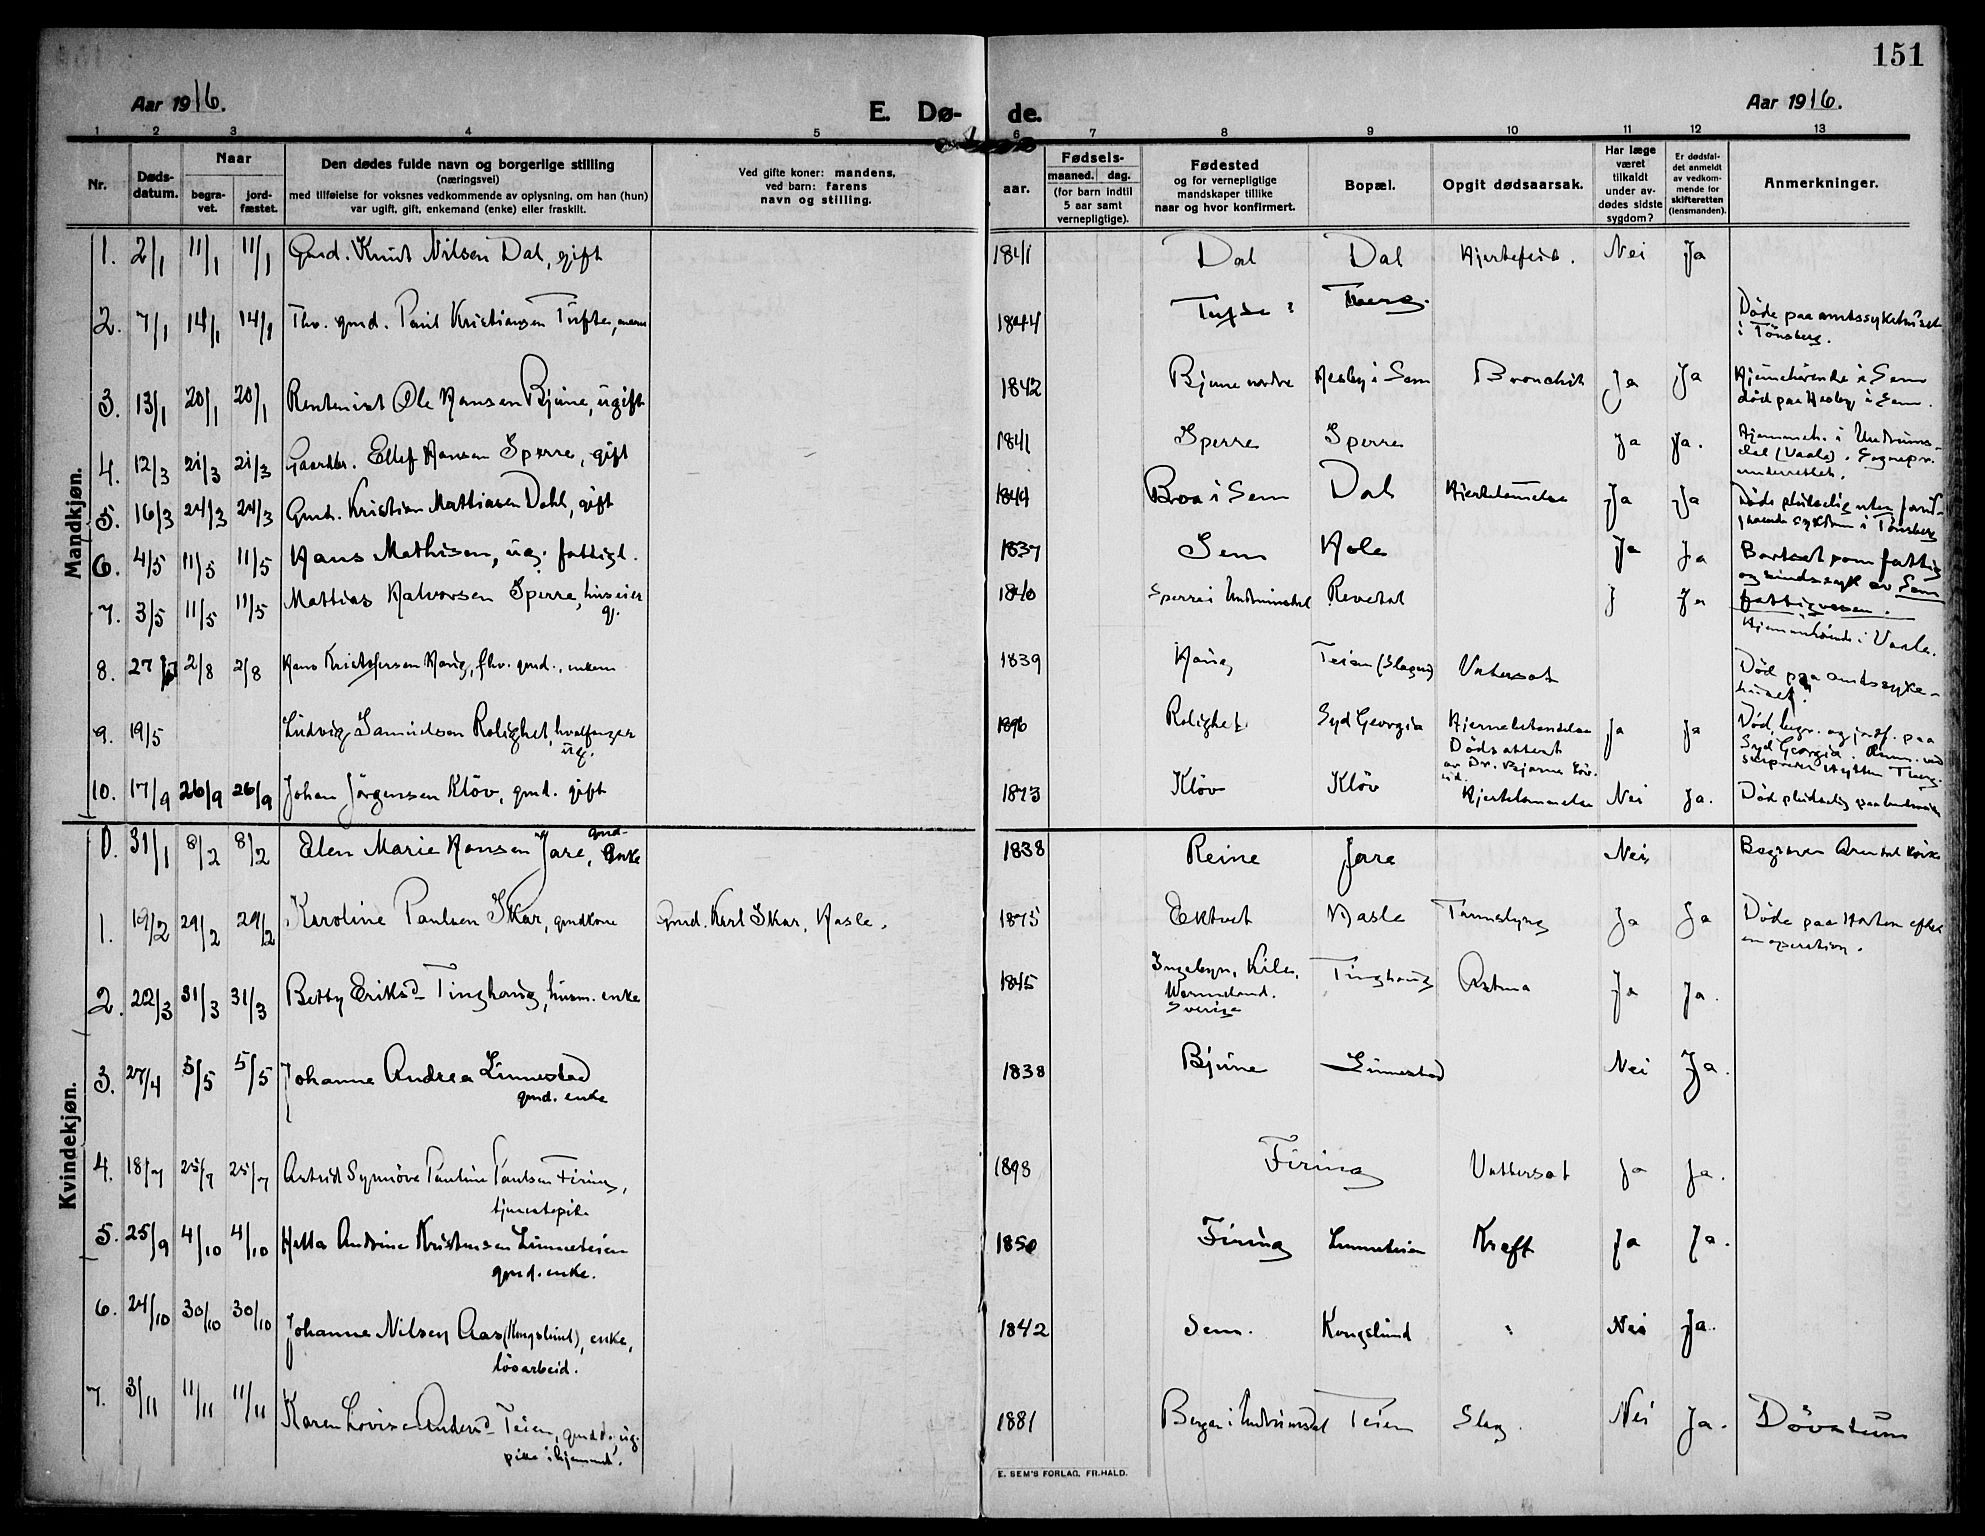 151
Aar 1916.
E. Dø- de.
Aar 1916.
1 2 3 4 5 6 7 8 9 10 11 12 13
Nr.
Døds-
datum.
Naar
begra-
vet.
jord-
fæstet.
Den dødes fulde navn og borgerlige stilling
(næringsvei)
med tilføielse for voksnes vedkommende av oplysning, om han (hun)
var ugift, gift, enkemand (enke) eller fraskilt.
Ved gifte koner: mandens,
ved barn: farens
navn og stilling.
Fødsels-
aar.
maaned. dag.
(for barn indtil
5 aar samt
vernepligtige).
Fødested
og for vernepligtige
mandskaper tillike
naar og hvor konfirmert.
Bopæl.
Opgit dødsaarsak.
Har læge
været
tilkaldt
under av-
dødes sidste
sygdom?
Er dødsfal-
det anmeldt
av vedkom-
mende for
skifteretten
(lensmanden).
Anmerkninger.
Mandkjøn.
1. 2/1 11/1 11/1 Gmd. Knut Nilsen Dal, gift 1841 Dal Dal Hjertefeil. Nei Ja
2. 7/1 14/1 14/1 Fhv. gmd. Paul Kristiansen Tufte, 1844 Tufte
Døde paa amtssykehuset
i Tønsberg.
3. 13/1 20/1 20/1 Rentenist Ole Hansen Bjune, ugift 1842 Bjune nordre Hesby i Sem Bronchit Ja Ja Hjemhørende i Sem
død paa Hesby i Sem.
4. 12/3 21/3 21/3 Gaardbr. Ellef Hansen Sperre, gift 1841 Sperre Sperre Ja Ja. Hjemmeh. i Undrums-
dal (Vaale). Sognepr.
underrettet.
5. 16/3 24/3 24/3 Gmd. Kristian Mattiasen Dahl, gift 1844 Broa i Sem Dal Hjertelammelse Ja Ja Døde pludselig uten forut-
gaaende sykdom i Tønsberg
6. 4/5 11/5 11/5 Hans Mathisen, ug. fattigl. 1837 Sem Hole Ja Ja Bortsat som fattig
og sindssyk av Sem
fattigvesen.
7. 3/5 11/5 11/5 Mattias Halvorsen Sperre, huseier 1840 Sperre i Undrumsdal Revetal J Ja
g.
Hjemmehørende i Vaale.
8. 27 2/8 2/8 Hans Kristofersen Haug, fhv. gmd., enkem 1839 Haug Teien (Slagen) Vatersot
Død paa amtssyke-
huset
9. 19/5 Ludvig Samuelsen Rolighet, hvalfanger 1896 Rolighet Syd Georgia Hjernebetændelse Ja Ja Død, begr. og jordf. paa
ug.
Dødsattest
Syd Georgia.
av Dr. Bjarne
10. 17/9 26/9 26/9 Johan Jörgensen Klöv, gmd. gift 1873 Klöv Klöv Hjertelammelse Nei Ja. Död pludselig paa
Kvindekjøn.
0. 31/1 8/2 8/2 Elen Marie Hansen Jare, gmd-
enke 1838 Reine Jare Nei Begraven
1. 19/2 29/2 29/2 Karoline Paulsen Skar, gmdkone Gmd. Karl Skar, Hasle. 1875 Ektvet Hasle Tarmslyng Ja Ja Døde paa Horten efter
en operation.
2. 22/3 31/3 31/3 Betty Eriksd Tinghaug, husm. enke 1845 Ingebyn, Kila,
Wermeland.
Sverige
Tinghaug Astma Ja Ja.
3. 27/4 5/5 5/5 Johanne Andrea Linnestad
gmd. enke
1838 Bjune Linnestad Nei Ja.
4. 18/7 25/7 25/7 Astrid Synnöve Pauline Paulsen Firing,
tjenestepike
1898 Firing Vattersot Ja Ja.
5. 25/9 4/10 4/10 Helle Andrine Kristensen Linneteien
gmd. enke.
1850 Firing Linneteien Kreft Ja Ja.
6. 24/10 30/10 30/10 Johanne Nilsen Aas (Kongslund), enke,
løsarbeid.
1842 Sem. Kongslund Nei Ja.
7. 3/11 11/11 11/11 Karen Lovise Andersd Teien, gmdd., ug.
pike i hjemmet.
1881 Berger i Undrumsdal Teien Slag. Nei Ja. Døvstum
E. SEM'S FORLAG, FR.HALD.